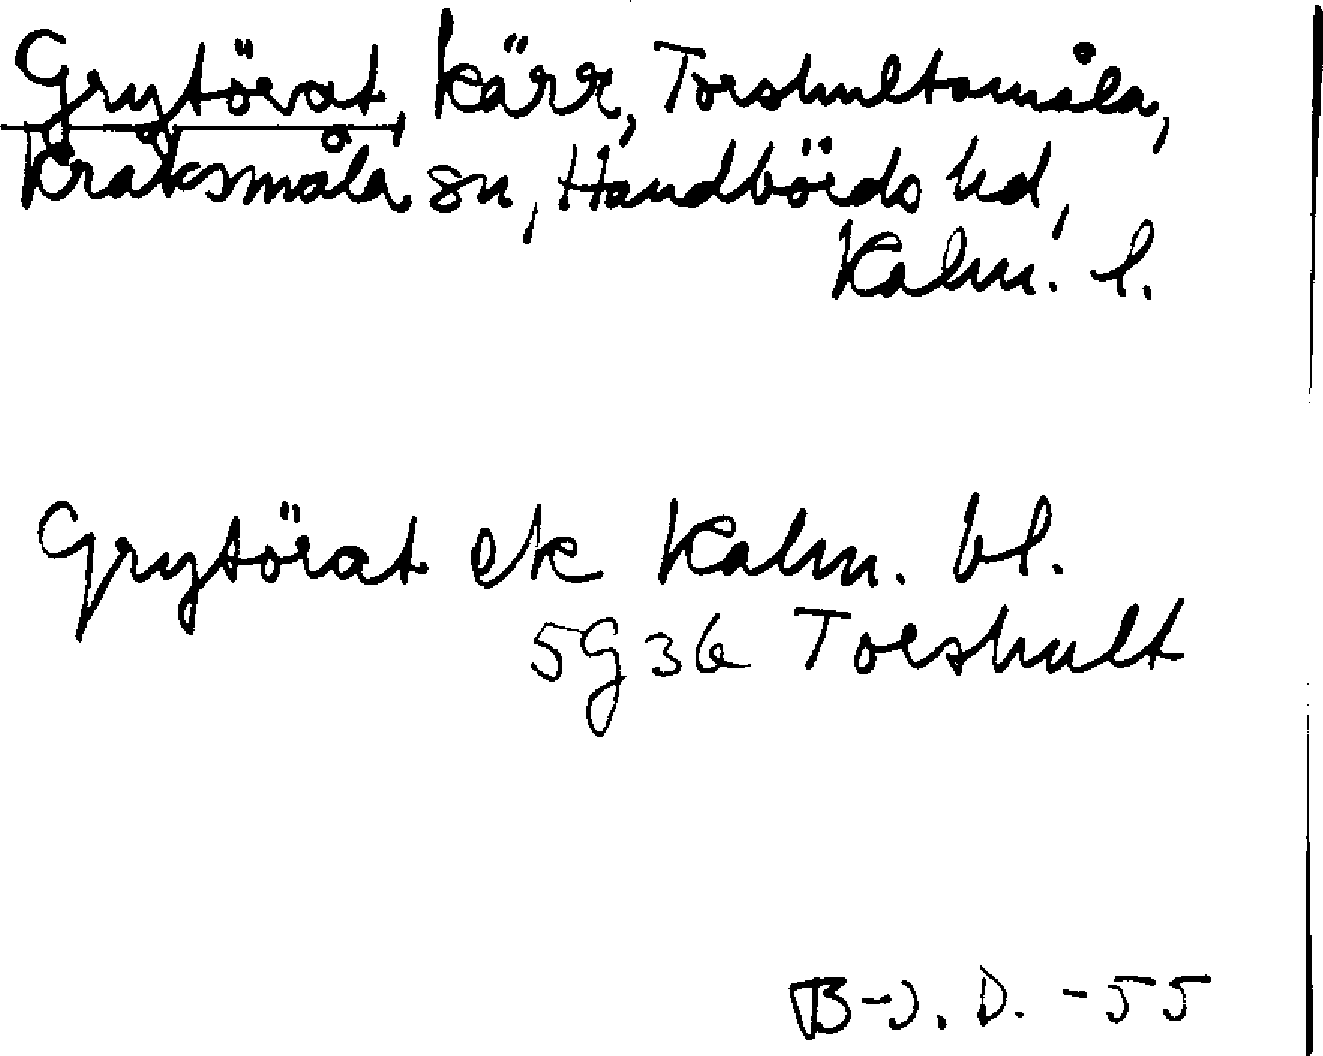 Grytörat, kärr, Torshultamåla,
Kråksmåla sn, Handbörds hd,
Kalm. l.
Grytörat ek Kalm. bl.
5g36 Torshult
B-J. D. -55